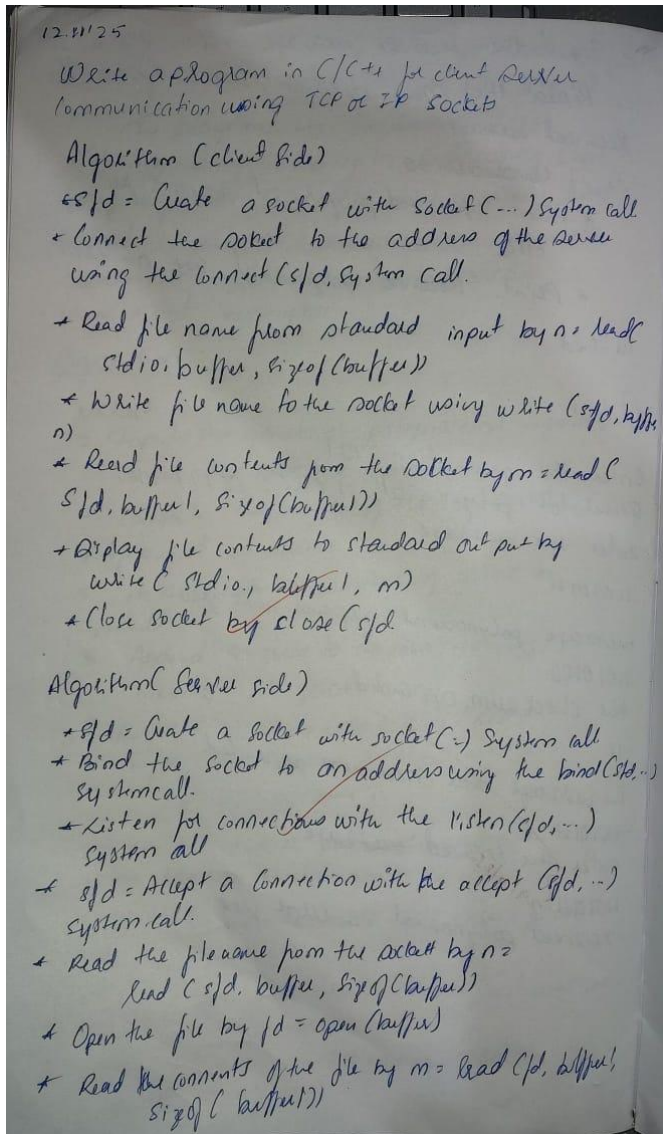 12.11'25
Write a program in C/C++ for client server
Communication using TCP or IP sockets
Algorithm (client side)
* s/d = Create a socket with Socket (...) System call
* Connect the socket to the address of the server
using the connect (s/d, System call.
* Read file name from standard input by n = read(
stdio, buffer, sizeof(buffer))
* Write file name to the socket using write (s/d, buffer,
n)
* Read file contents from the socket by m = read (
S/d, buffer1, Sizeof(buffer1))
* Display file contents to standard out put by
write ( stdio., buffer1, m)
* Close socket by close (s/d.
Algorithm( Server side)
* s/d = Create a Socket with socket (..) System call
* Bind the socket to an address using the bind(s/d,..)
system call.
* Listen for connections with the listen(s/d, ...)
System call
* s/d = Accept a Connection with the accept (s/d, ..)
system call.
* Read the filename from the socket by n =
read ( s/d, buffer, Sizeof(buffer))
* Open the file by fd = open (buffer)
* Read the contents of the file by m = read (fd, buffer1,
Sizeof ( buffer1))